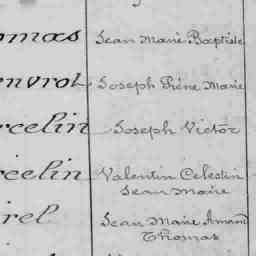 omas Jean Marie Baptiste
envrol Joseph Réné Marie
rcelin Joseph Victor
rcelin Valentin Célestin
Jean Marie
irel Jean Marie Amand
Thomas